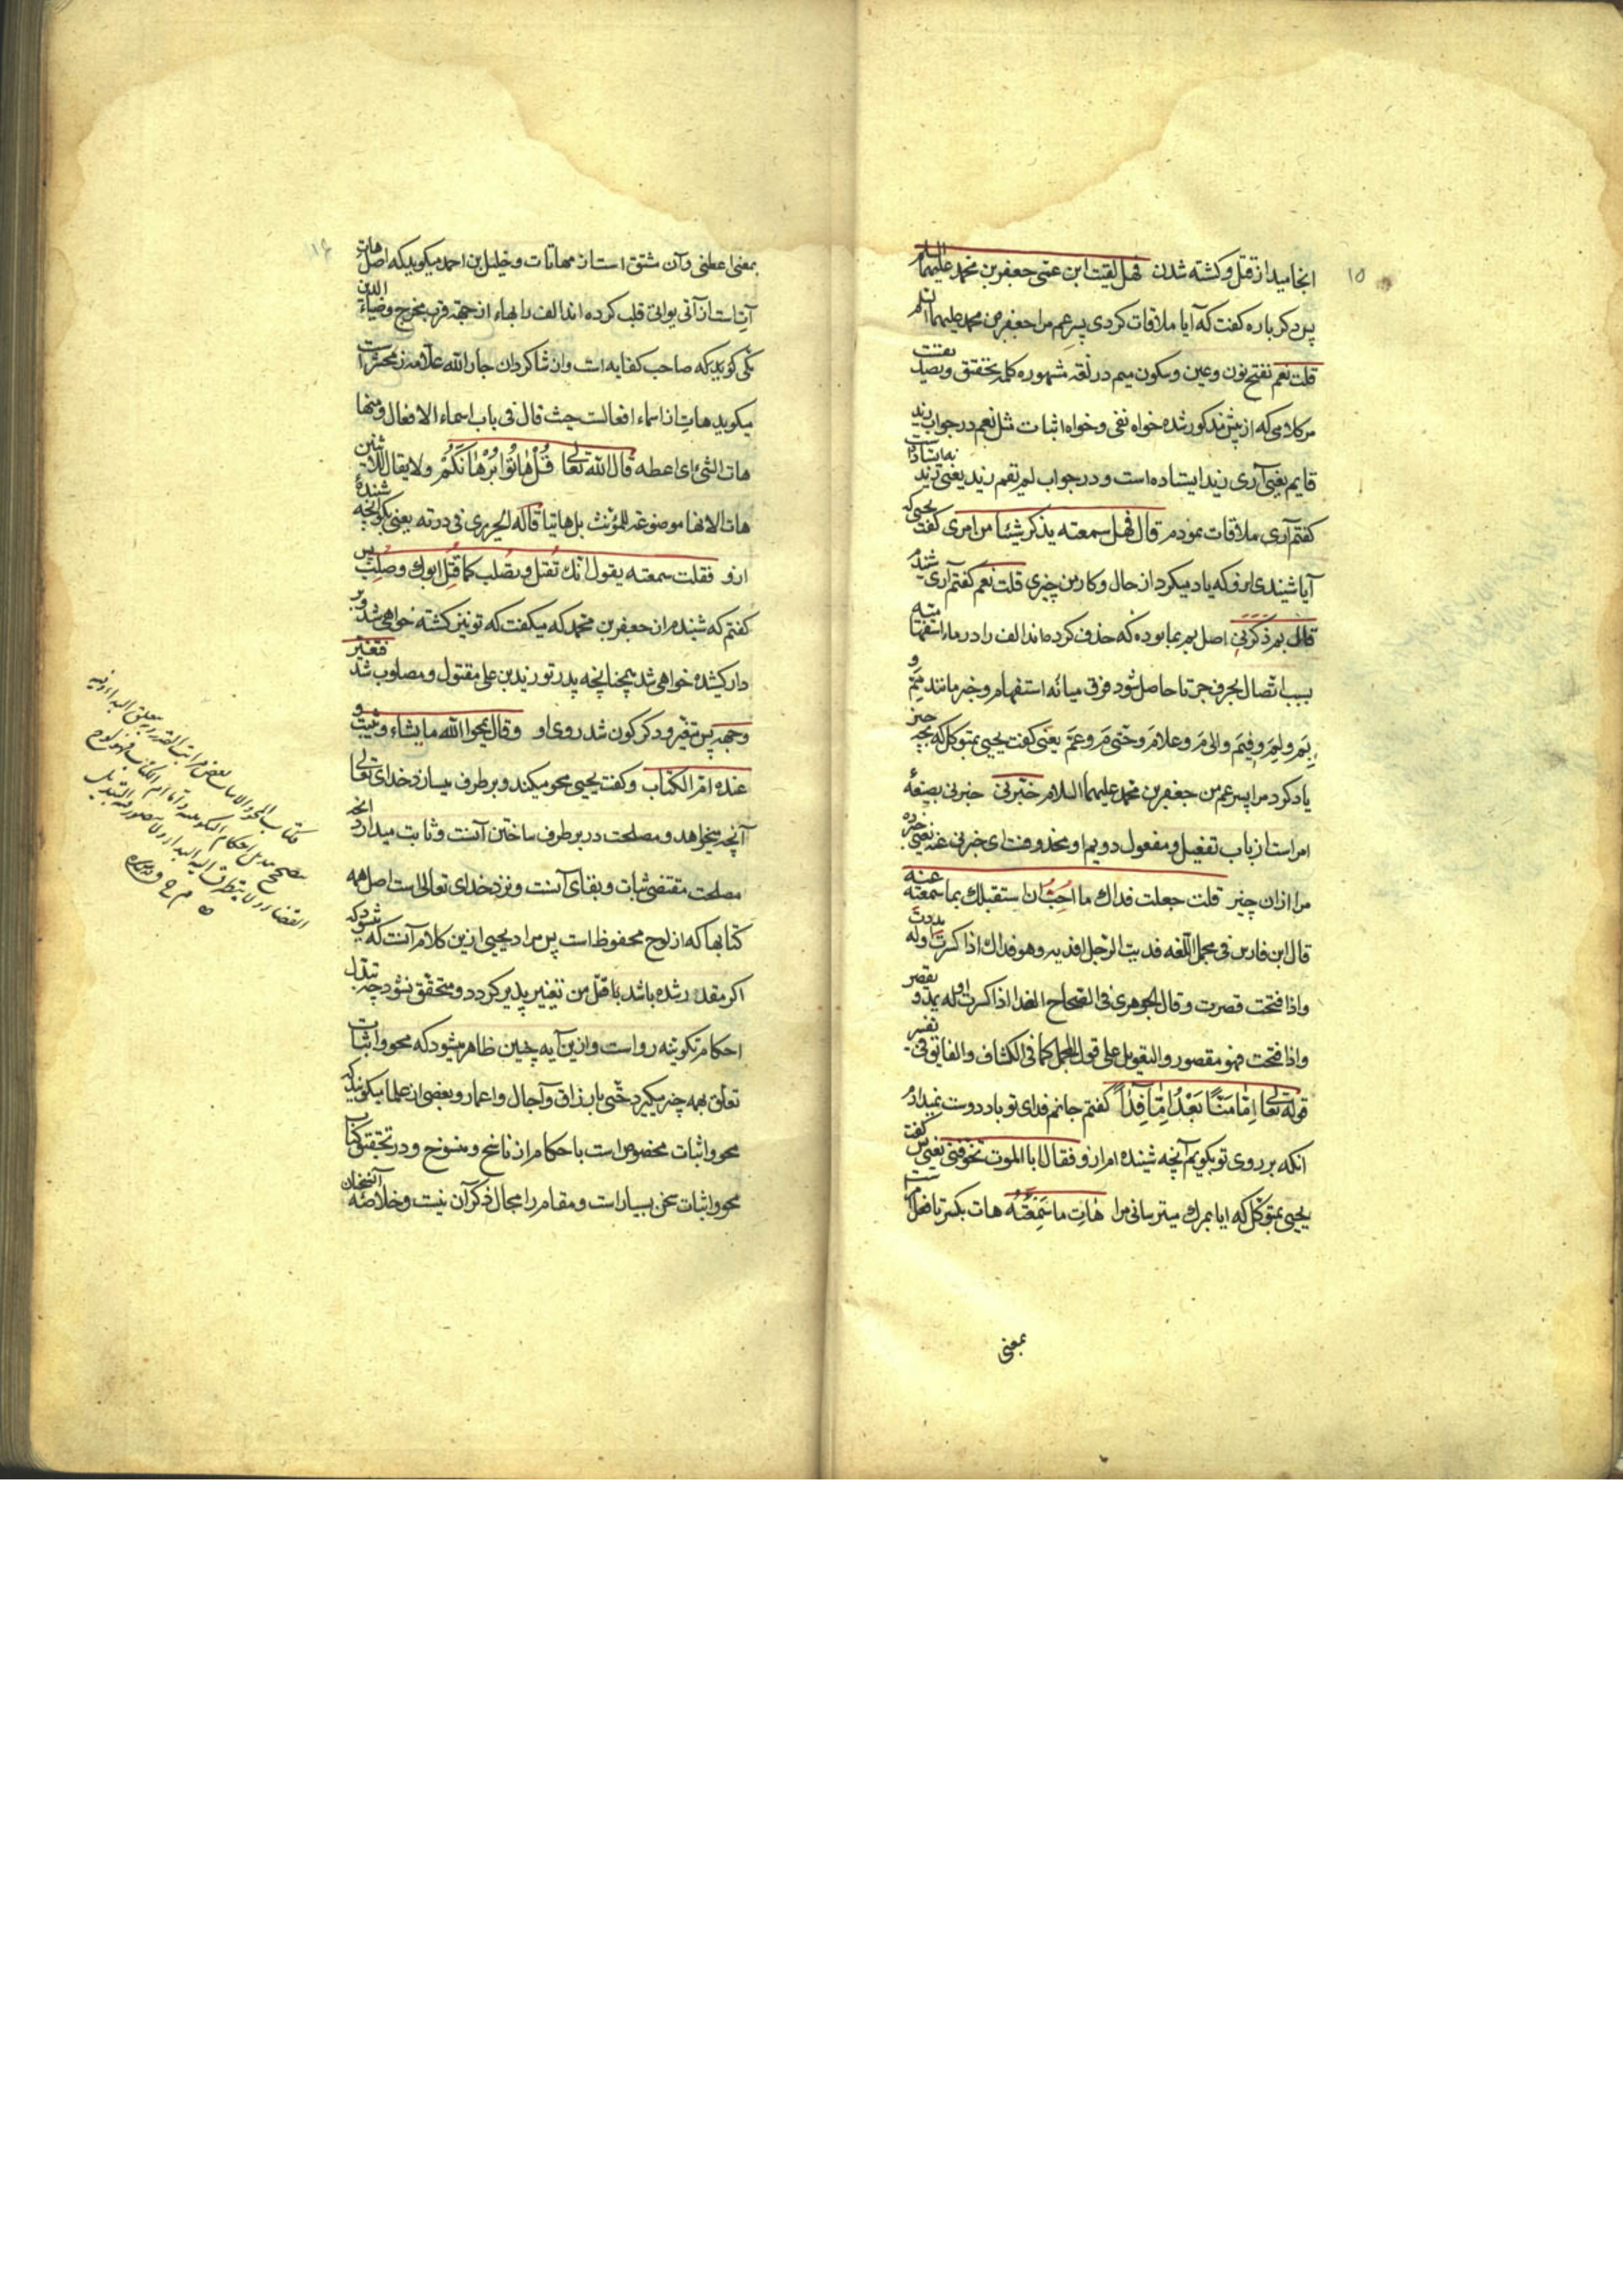 ۱۵
انجامید از قتل و کشته شدن فهل لقیت ابن عمّی جعفر بن محمد علیهما السلام
پس دکر باره کفت که آیا ملاقات کردی پسر عم مرا جعفر بن محمد علیهما السلم
قلت نعم بفتح نون و عین و سکون میم در لغة مشهوره کلمه تحقیق و تصدیقست
مر کلامی که از پیش مذکور شده خواه نفی و خواه اثبات مثل نعم در جواب زید
قایم یعنی آری زید ایستاده است و در جواب لم یقم زید یعنی زید نه ایستاده
کفتم آری ملاقات نمودم قال فهل سمعته یذکر شیئا من امری کفت یحیی که
آیا شنیدی ازو که یاد میکرد از حال و کار من چیزی قلت نعم کفتم آری شنیدم
قال بم ذکرنی اصل بم بما بوده که حذف کرده اند الف را در ما استفهامیته
بسبب اتصال بحرف جر تا حاصل شود فرق میانهٔ استفهام و خبر مانند مِمَّ و
بِمَ و لِمَ و فِیمَ و الی مَ و علامَ و حتی مَ و عَمَّ یعنی کفت یحیی بمتوکل که بچه چیز
یاد کرد مرا پسر عم من جعفر بن محمد علیهما السلام خبّرنی خبرنی بصیغهٔ
امر است از باب تفعیل و مفعول دویم او محذوفت ای خبرنی عنه یعنی خبر ده
مرا از ان چیز قلت جعلت فداك ما احبّ ان استقبلك بما سمعته عنه
قال ابن فارس فی مجمل اللغه فدیت الرجل افدیه و هو فداك اذا کسرت اوله مددت
و اذا فتحت قصرت و قال الجوهری فی الصحاح الفدا اذا کسرت اوله یمد و یقصر
و اذا فتحت فهو مقصور و التعویل علی قول المجمل کما فی الکشاف و الفایق فی تفسیر
قوله تعالی اِمّا مَنّاً بَعْدُ وَ اِمّا فِدآءً کفتم جانم فدای تو باد دوست نمیدارم
انکه بر روی تو بکویم آنچه شنیده ام ازو فقال ابا الموت تخوّفنی یعنی پس کفت
یحیی بمتوکل که ایا بمرك میترسانی مرا هات ما سَمِعْتَه هات بکسر تا فعل امرست
بمعنی
۱۶
بمعنی اعطنی و آن مشتق است از مهاتات و خلیل بن احمد میکوید که اصل هات
آتِ است از آتی یواتی قلب کرده اند الف را بهاء از جهة قرب مخرج و ضیاء الدین
مکی کوید که صاحب کفایه است و از شاکردان جار الله علامه زمخشریست
میکوید هات از اسماء افعالست حیث قال فی باب اسماء الافعال و منها
هات الشیٔ ای اعطه قال الله تعالی قُلْ هاتُوا بُرْهانَکُمْ و لا یقال للاثنین
هات الا انها موضوعة للمؤنث بل هاتیا قاله الحریری فی درته یعنی بکو آنچه شنیدهٔ
ازو فقلت سمعته یقول انك تُقتل و تُصلب کما قُتِل ابوك و صُلِب پس
کفتم که شنیدم از جعفر بن محمد که میکفت که تو نیز کشته خواهی شد و بر
دار کشیده خواهی شد همچنانچه پدر تو زید بن علی مقتول و مصلوب شد فتغیّر
وجهه پس متغیر و دکرکون شد روی او و قال یمحوا الله ما یشاء و یثبت و
عنده امّ الکتاب و کفت یحیی محو میکند و بر طرف میسازد خدای تعالی
آنچه میخواهد و مصلحت در بر طرف ساختن آنست و ثابت میدارد انچه
مصلحت مقتضی ثبات و بقای آنست و نزد خدای تعالی است اصل همه
کتابها که از لوح محفوظ است پس مراد یحیی ازین کلام آنست که میشود که
اکر مقدر شده باشد با قتل من تغییر پذیر کردد و متحقق نشود چه تبدل
احکام تکوینیه رواست و ازین آیه چنین ظاهر میشود که محو و اثبات
تعلق بهمه چیز میکیرد حتی بارزاق و آجال و اعمار و بعضی از علما میکویند که
محو و اثبات مخصوص است باحکام از ناسخ و منسوخ و در تحقیق کتاب
محو و اثبات سخن بسیار است و مقام را مجال ذکر آن نیست و خلاصه آنسخنان